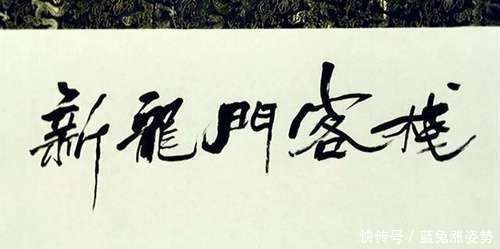 新龍門客棧
快传号/蓝兔涨姿势